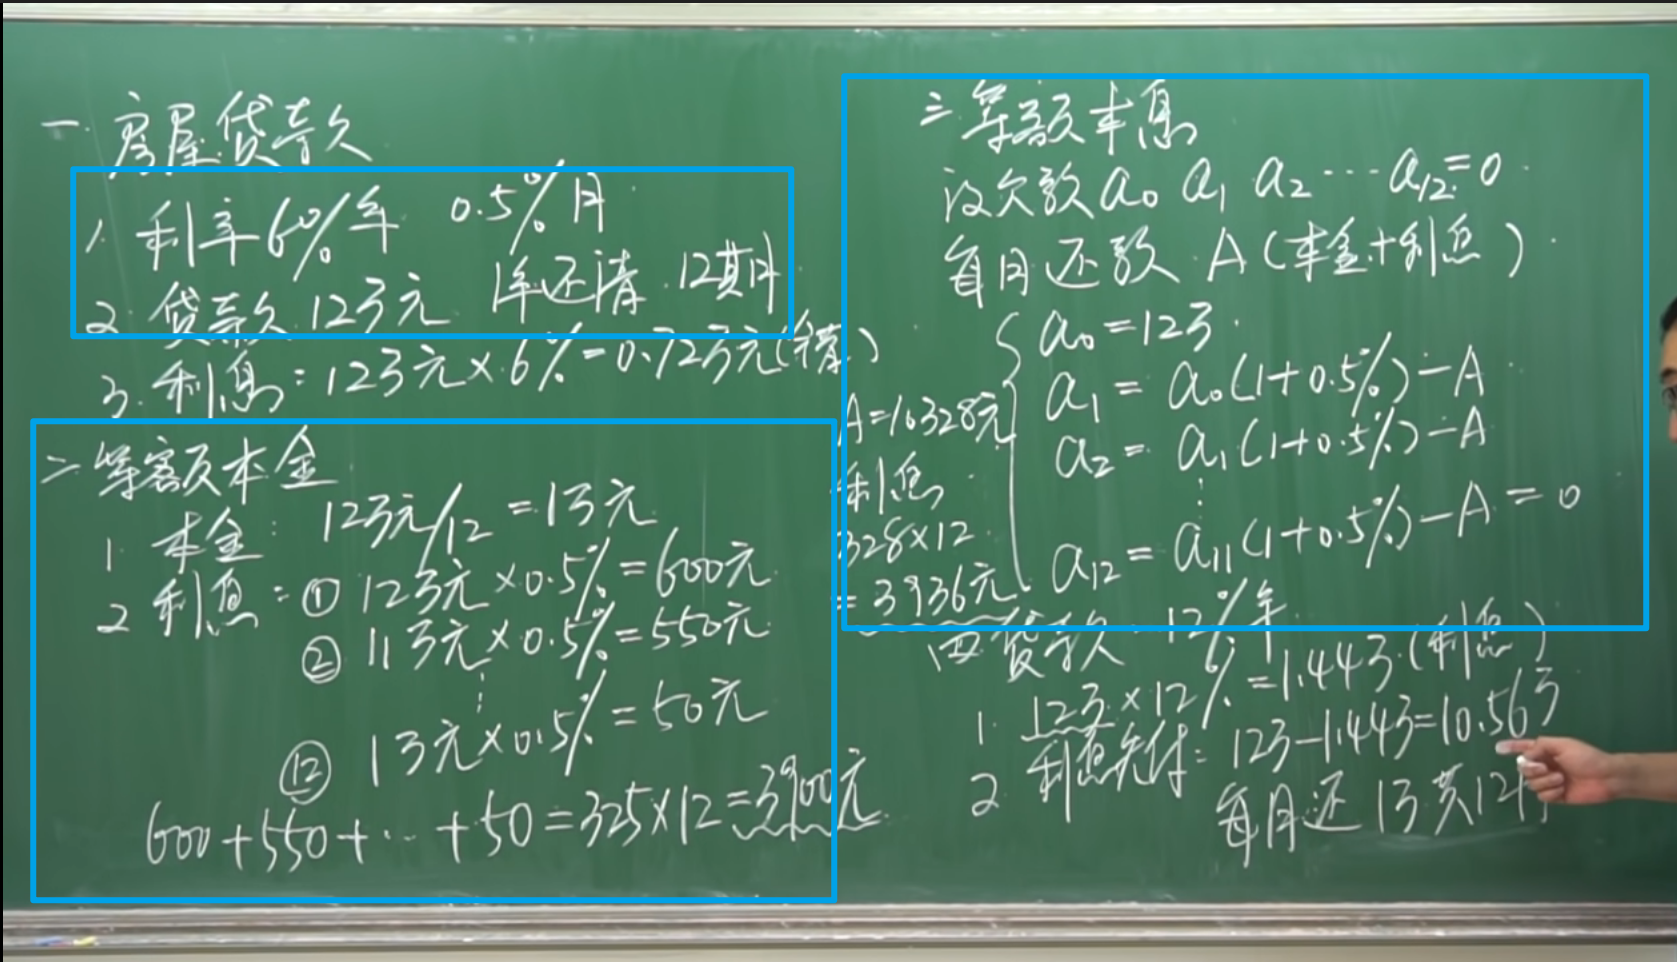 一.房屋贷款
1. 利率6%/年 0.5%/月
2. 贷款12万元 1年还清.12期
3. 利息:12万元×6%=0.72万元
二.等额本金
1. 本金: 12万元/12=1万元
2 利息:①12万元×0.5%=600元
②11万元×0.5%=550元
⋮
⑫1万元×0.5%=50元
600+550+…+50=325×12=3900元
三.等额本息
设欠款a₀ a₁ a₂…a₁₂=0
每月还款 A(本金+利息)
a₀=12万
a₁=a₀(1+0.5%)-A
a₂=a₁(1+0.5%)-A
⋮
a₁₂=a₁₁(1+0.5%)-A=0
A=10328元
利息
328×12
=3936元
四 贷款 12%/年
1. 12万×12%=1.44万(利息)
2 利息先付:12万-1.44万=10.56万
每月还1万共12